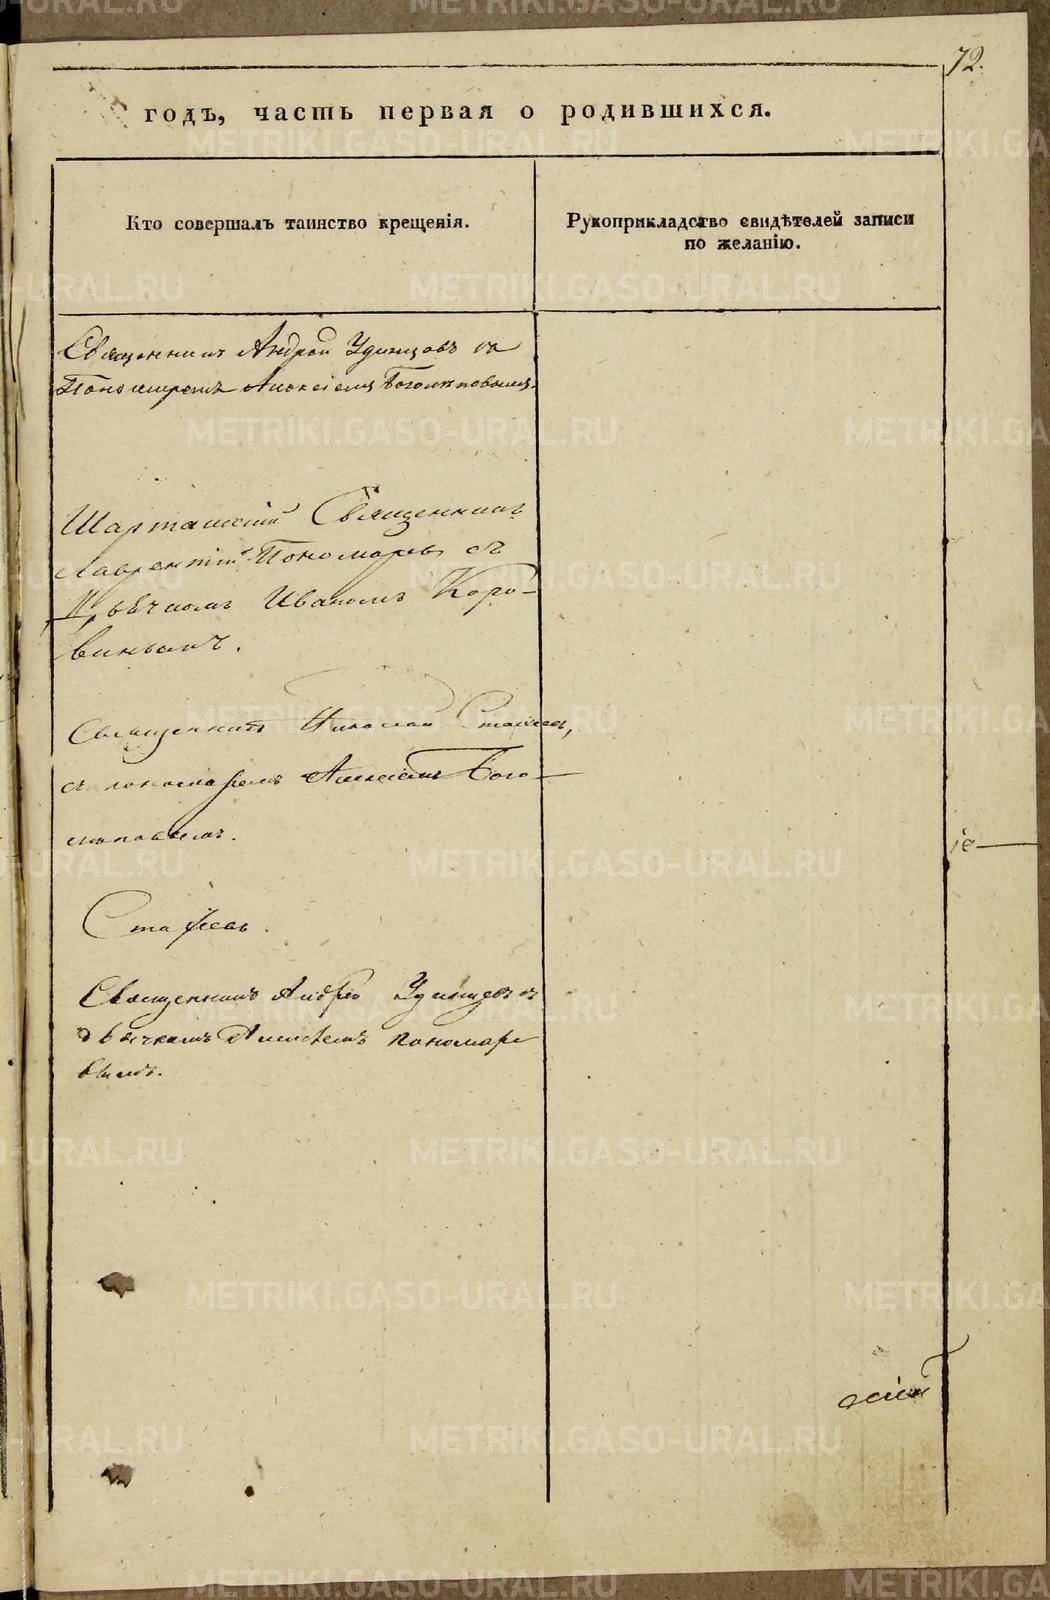 72.
годъ, часть первая о родившихся.
Кто совершалъ таинство крещенія.
Рукоприкладство свидѣтелей записи
по желанію.
Священникъ Андрей Удинцовъ съ
Пономаремъ Алексіемъ Богомоловымъ.
Шарташскій Священникъ
Лаврентій Пономаревъ съ
Дьячкомъ Иваномъ Коро-
винымъ.
Священникъ Николай
съ пономаремъ Алексіемъ Бого-
Священникъ Андрей Удинцовъ съ
дьячкомъ Алексѣемъ пономаре
вымъ.
METRIKI.GASO-URAL.RU